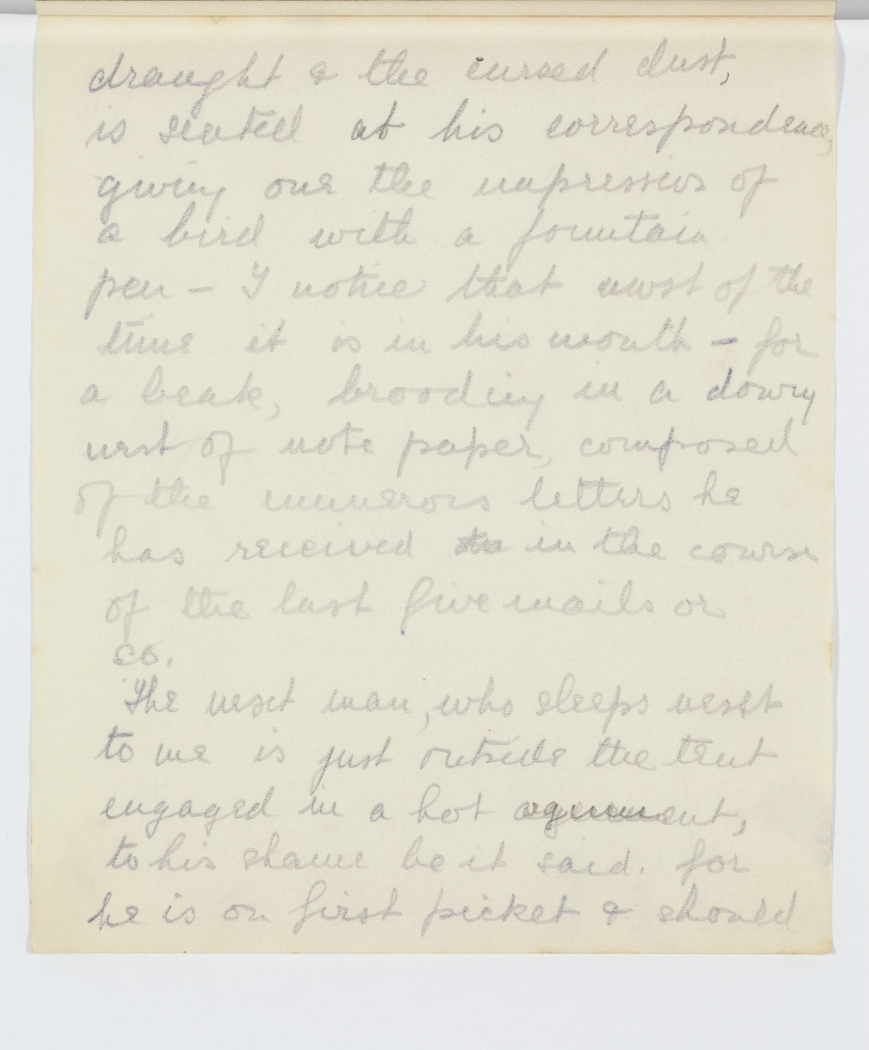 draught & the cursed dust,
is seated at his correspondence,
giving one the impression of
a bird with a fountain
pen – I notice that most of the
time it is in his mouth – for
a beak, brooding in a downy
nest of note paper, composed
of the numerous letters he
has received in the course
of the last five mails or
so.
The next man, who sleeps next
to me is just outside the tent
engaged in a hot agument,
to his shame be it said. for
he is on first picket & should